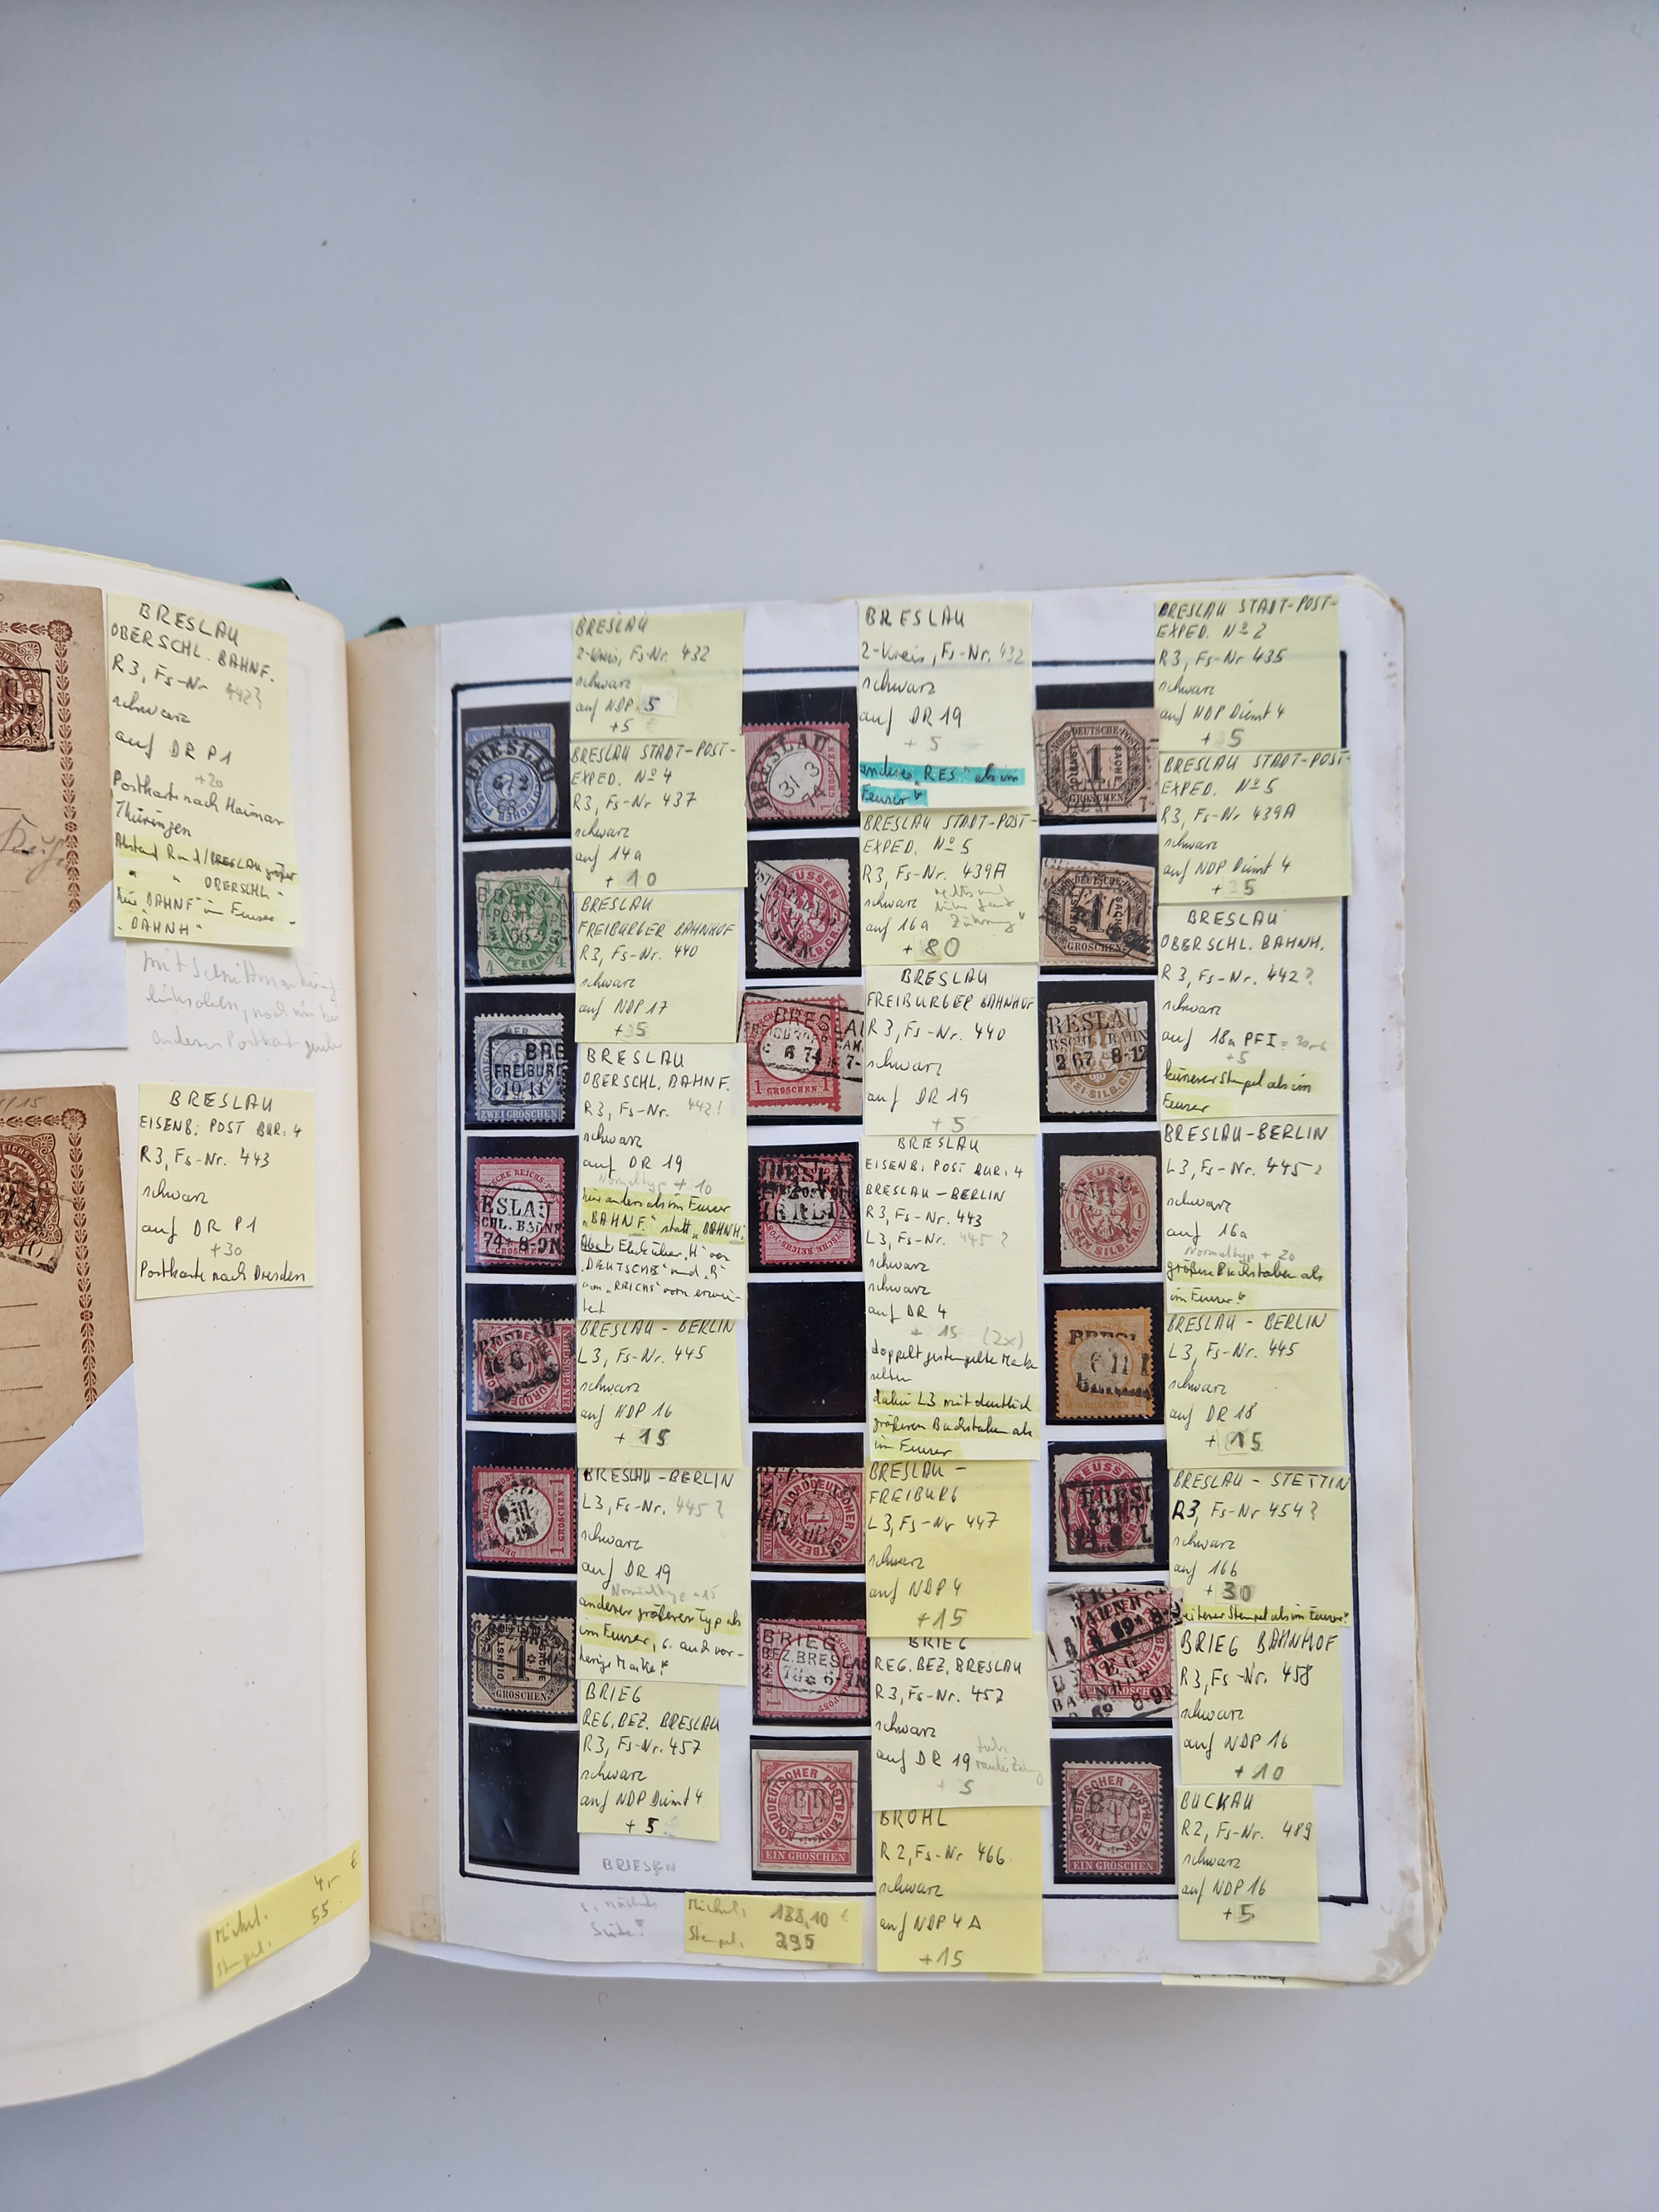 BRESLAU
OBERSCHL. BAHNF.
R3, Fs-Nr 442?
schwarz
auf DR P1
+20
Postkarte nach Haimar
Thüringen
Abstand R und/BRESLAU größer
" " OBERSCHL "
hier "BAHNF" im Feuser -
"BAHNH"
BRESLAU
EISENB. POST BUR. 4
R3, Fs-Nr. 443
schwarz
auf DR P1
+30
Postkarte nach Dresden
Michel. 4,- €
Stempel. 55
BRESLAU
2-Kreis, Fs-Nr. 432
schwarz
auf NDP 5
+5 €
BRESLAU STADT-POST-
EXPED. No 4
R3, Fs-Nr 437
schwarz
auf 14a
+ 10
BRESLAU
FREIBURGER BAHNHOF
R3, Fs-Nr. 440
schwarz
auf NDP 17
BRESLAU
OBERSCHL. BAHNF.
R3, Fs-Nr. 442!
schwarz
auf DR 19
Normaltyp + 10
hier anders als im Feuser
"BAHNF." statt "BAHNH."
"DEUTSCHE" und "R"
von "REICHS" vorn erwei-
tert
BRESLAU - BERLIN
L3, Fs-Nr. 445
schwarz
auf NDP 16
+ 15
BRESLAU - BERLIN
L3, Fs-Nr. 445?
schwarz
auf DR 19
Normaltyp +15
anderer größerer Typ als
im Feuser, s. auch vor-
herige Marke!
BRIEG
REG. BEZ. BRESLAU
R3, Fs-Nr. 457
schwarz
auf NDP Dienst 4
+ 5
BRIESEN
s. nächste
Seite!
Michel. 188,10 €
Stempel. 295
BRESLAU
2-Kreis, Fs-Nr. 432
schwarz
auf DR 19
+ 5
anderes "RES" als im
Feuser!
BRESLAU STADT-POST-
EXPED. No 5
R3, Fs-Nr. 439A
schwarz
auf 16a
+ 80
BRESLAU
FREIBURGER BAHNHOF
R3, Fs-Nr. 440
schwarz
auf DR 19
+ 5
BRESLAU
EISENB. POST BUR. 4
BRESLAU - BERLIN
R3, Fs-Nr. 443
L3, Fs-Nr. 445?
schwarz
schwarz
auf DR 4
+ 15 (2x)
doppelt gestempelte Marke
selten
dabei L3 mit deutlich
größeren Buchstaben als
im Feuser
BRESLAU -
FREIBURG
L3, Fs-Nr 447
schwarz
auf NDP 4
+15
BRIEG
REG. BEZ. BRESLAU
R3, Fs-Nr. 457
schwarz
auf DR 19
+ 5
BROHL
R2, Fs-Nr 466
schwarz
auf NDP 4 A
+15
BRESLAU STADT-POST-
EXPED. No 2
R3, Fs-Nr 435
schwarz
auf NDP Dienst 4
BRESLAU STADT-POST-
EXPED. No 5
R3, Fs-Nr. 439A
schwarz
auf NDP Dienst 4
BRESLAU
OBERSCHL. BAHNH.
R3, Fs-Nr. 442?
schwarz
auf 18a PFI
+5
kürzerer Stempel als im
Feuser
BRESLAU-BERLIN
L3, Fs-Nr. 445?
schwarz
auf 16a
Normaltyp + 20
größere Buchstaben als
im Feuser!
BRESLAU - BERLIN
L3, Fs-Nr. 445
schwarz
auf DR 18
+ 15
BRESLAU - STETTIN
R3, Fs-Nr 454?
schwarz
auf 16b
+ 30
Stempel als im Feuser!
BRIEG BAHNHOF
R3, Fs-Nr. 458
schwarz
auf NDP 16
+ 10
BUCKAU
R2, Fs-Nr. 489
schwarz
auf NDP 16
+5
BRESLAU
BRESLAU
31 3
74
FREIBURG
10 11
ZWEI GROSCHEN
RESLAU
2 67 8-12
ESLAU
CHL. BAHNF
74 8-9N
BRIEG
BEZ. BRESLAU
NORDDEUTSCHER POSTBEZIRK
EIN GROSCHEN
NORDDEUTSCHER POSTBEZIRK
EIN GROSCHEN